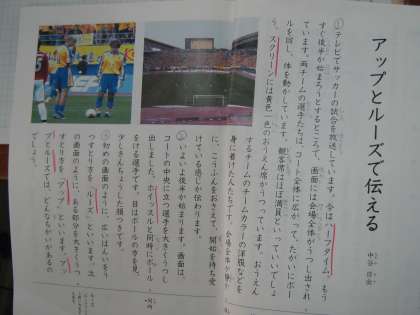 アップとルーズで伝える
中谷 日出
①テレビでサッカーの試合を放送しています。今はハーフタイム。もう
すぐ後半が始まろうとするところで、画面には会場全体がうつし出され
ています。両チームの選手たちは、コート全体に広がって、たがいにボー
ルを回し、体を動かしています。観客席はほぼ満員といっていいでしょ
う。スクリーンには黄色一色のおうえん席がうつっています。おうえん
するチームのチームカラーの洋服などを
身に着けた人たちです。会場全体が静か
に、こうふんをおさえて、開始を待ち受
けている感じが伝わります。
②いよいよ後半が始まります。画面は、
コートの中央に立つ選手を大きくうつし
出しました。ホイッスルと同時にボール
をける選手です。目はボールの方を見、
少しきんちょうした顔つきです。
③初めの画面のように、広いはんいをう
つすとり方を「ルーズ」といいます。次
の画面のように、ある部分を大きくうつ
すとり方を「アップ」といいます。アッ
プとルーズでは、どんなちがいがあるの
でしょう。